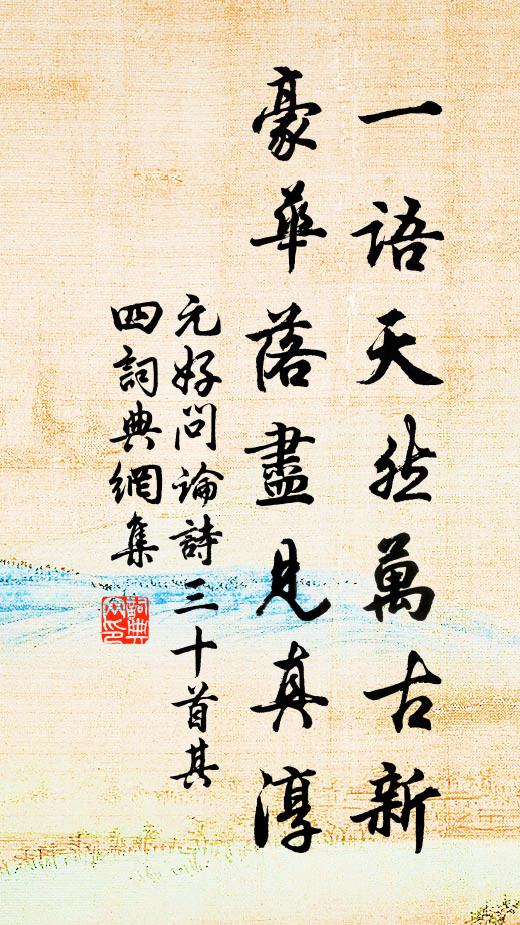 一語天然萬古新
豪華落盡見真淳
元好问論詩三十首其
四詞典網集
詞典網印